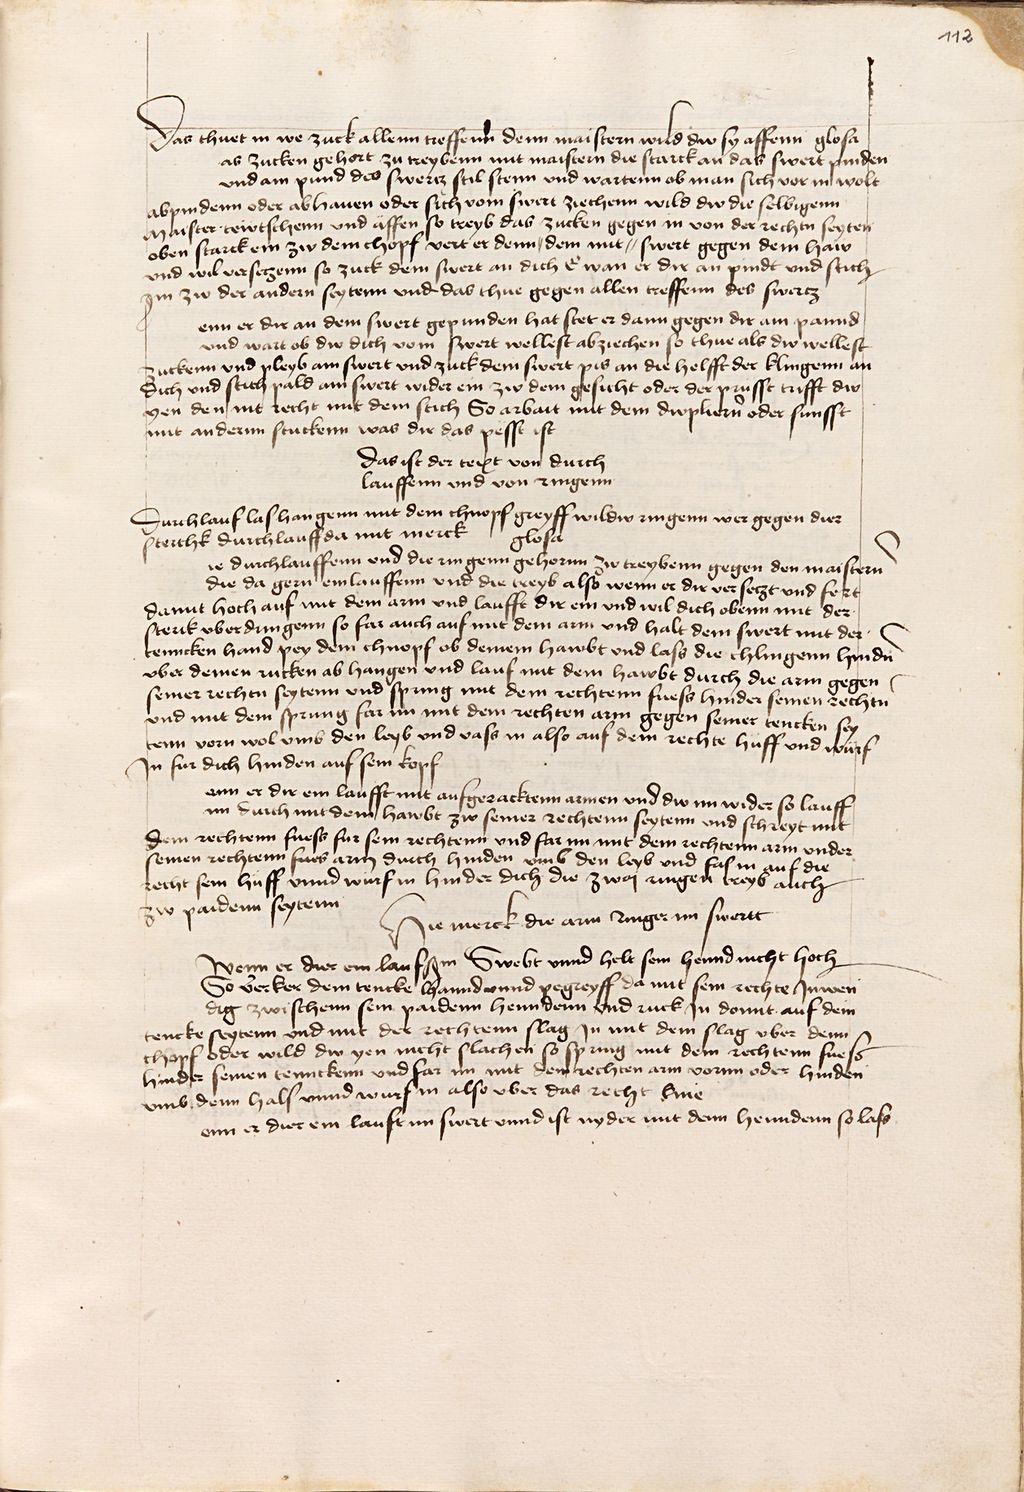 112
Das thuet in we zuck allenn treffenn denn maistern wild dw sy affenn glosa
as zucken gehort zu treybenn mit maistern die starck an das swert pinden
vnd am pind des swertz stil stenn vnd wartenn ob man sich vor in wolt
abpindenn oder abhauen oder sich vom swert ziechenn wild dw die selbigenn
Maister tewtschenn vnd äffen so treyb das zucken gegen in von der rechtn seyten
oben starck ein zw dem chopf vert er denn dem mit swert gegen dem haw
vnd wil versetzenn so zuck dem swert an dich e wan er dir an pindt vnd stich
Im zw der andern seytenn vnd das thue gegen allen treffenn des swertz
enn er dir an dem swert gepunden hat stet er dann gegen dir am pannd
vnd wart ob dw dich vom swert wellest abziechen so thue als dw wellest
zuckenn vnd pleyb am swert vnd zuck dem swert pis an die helfft der klingenn an
dich vnd stich pald am swert wider ein zw dem gesicht oder der prüsst trifft dw
yen den nit recht mit dem stich So arbait mit dem dwpliern oder sunsst
mit andernn stuckenn was dir das pesst ist
Das ist der text von durch
lauffenn vnd von ringenn
Durchlauf las hangenn mit dem chnopf greyff wildw ringenn wer gegen dier
sterchk durchlauff da mit merck glosa
ie durchlauffenn vnd die ringenn gehornn zw treybenn gegen den maistern
die da gern einlauffenn vnd die treyb also wenn er dir versetzt vnd fert
damit hoch auf mit dem arm vnd laufft dir ein vnd wil dich obenn mit der
sterck vberdringenn so far auch auf mit dem arm vnd halt dem swert mit der
tenncken hand pey dem chnopf ob deinem hawbt vnd lass die chlingenn hindn
vber deinen rucken ab hangen vnd lauf mit dem hawbt durch die arm gegen
seiner rechtn seytenn vnd spring mit dem rechtenn fuess hinder seinen rechtn
vnd mit dem sprung far im mit dem rechten arm gegen seiner tencken sey
tenn vorn wol vmb den leyb vnd vass in also auf dem rechte hüff vnd würf
In fur dich hinden auf sein kopf
enn er dir ein laufft mit aufgeracktenn armen vnd dw im wider so lauff
im durch mit dem hawbt zw seiner rechtenn seytenn vnd schreyt mit
dem rechtenn fuess fur sein rechtenn vnd far im mit dem rechtenn arm vnder
seinen rechtenn fues arm durch hinden vmb den leyb vnd fas in auf die
recht sein hüff vnnd würf in hinder dich die zwaj ringen treyb auch
zw paidenn seytenn
Hie merck die arm Ringer im swertt
Wenn er dier ein lauf im Swebt vnnd helt sein hennd nicht hoch
So verker dein tencke hannd vnnd pegreyff da mit sein rechte Inwen
dig zwischenn sein paidenn henndenn vnd ruck In domit auf dein
tencke seytenn vnd mit der rechtenn slag In mit dem slag vber denn
chopf oder wild dw yen nicht slachen so spring mit dem rechtenn fuess
hinder seinen tennckenn vnd far im mit dem rechten arm vornn oder hinden
vmb denn hals vnnd wurf in also vber das recht knie
enn er dier ein lauft im swert vnnd ist nyder mit denn henndenn so lass